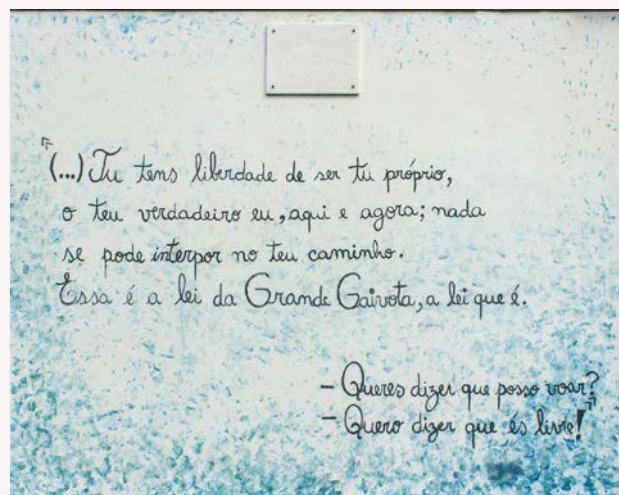 "(...) Tu tens liberdade de ser tu próprio,
o teu verdadeiro eu, aqui e agora; nada
se pode interpor no teu caminho.
Essa é a lei da Grande Gaivota, a lei que é.
– Queres dizer que posso voar?
– Quero dizer que és livre!"